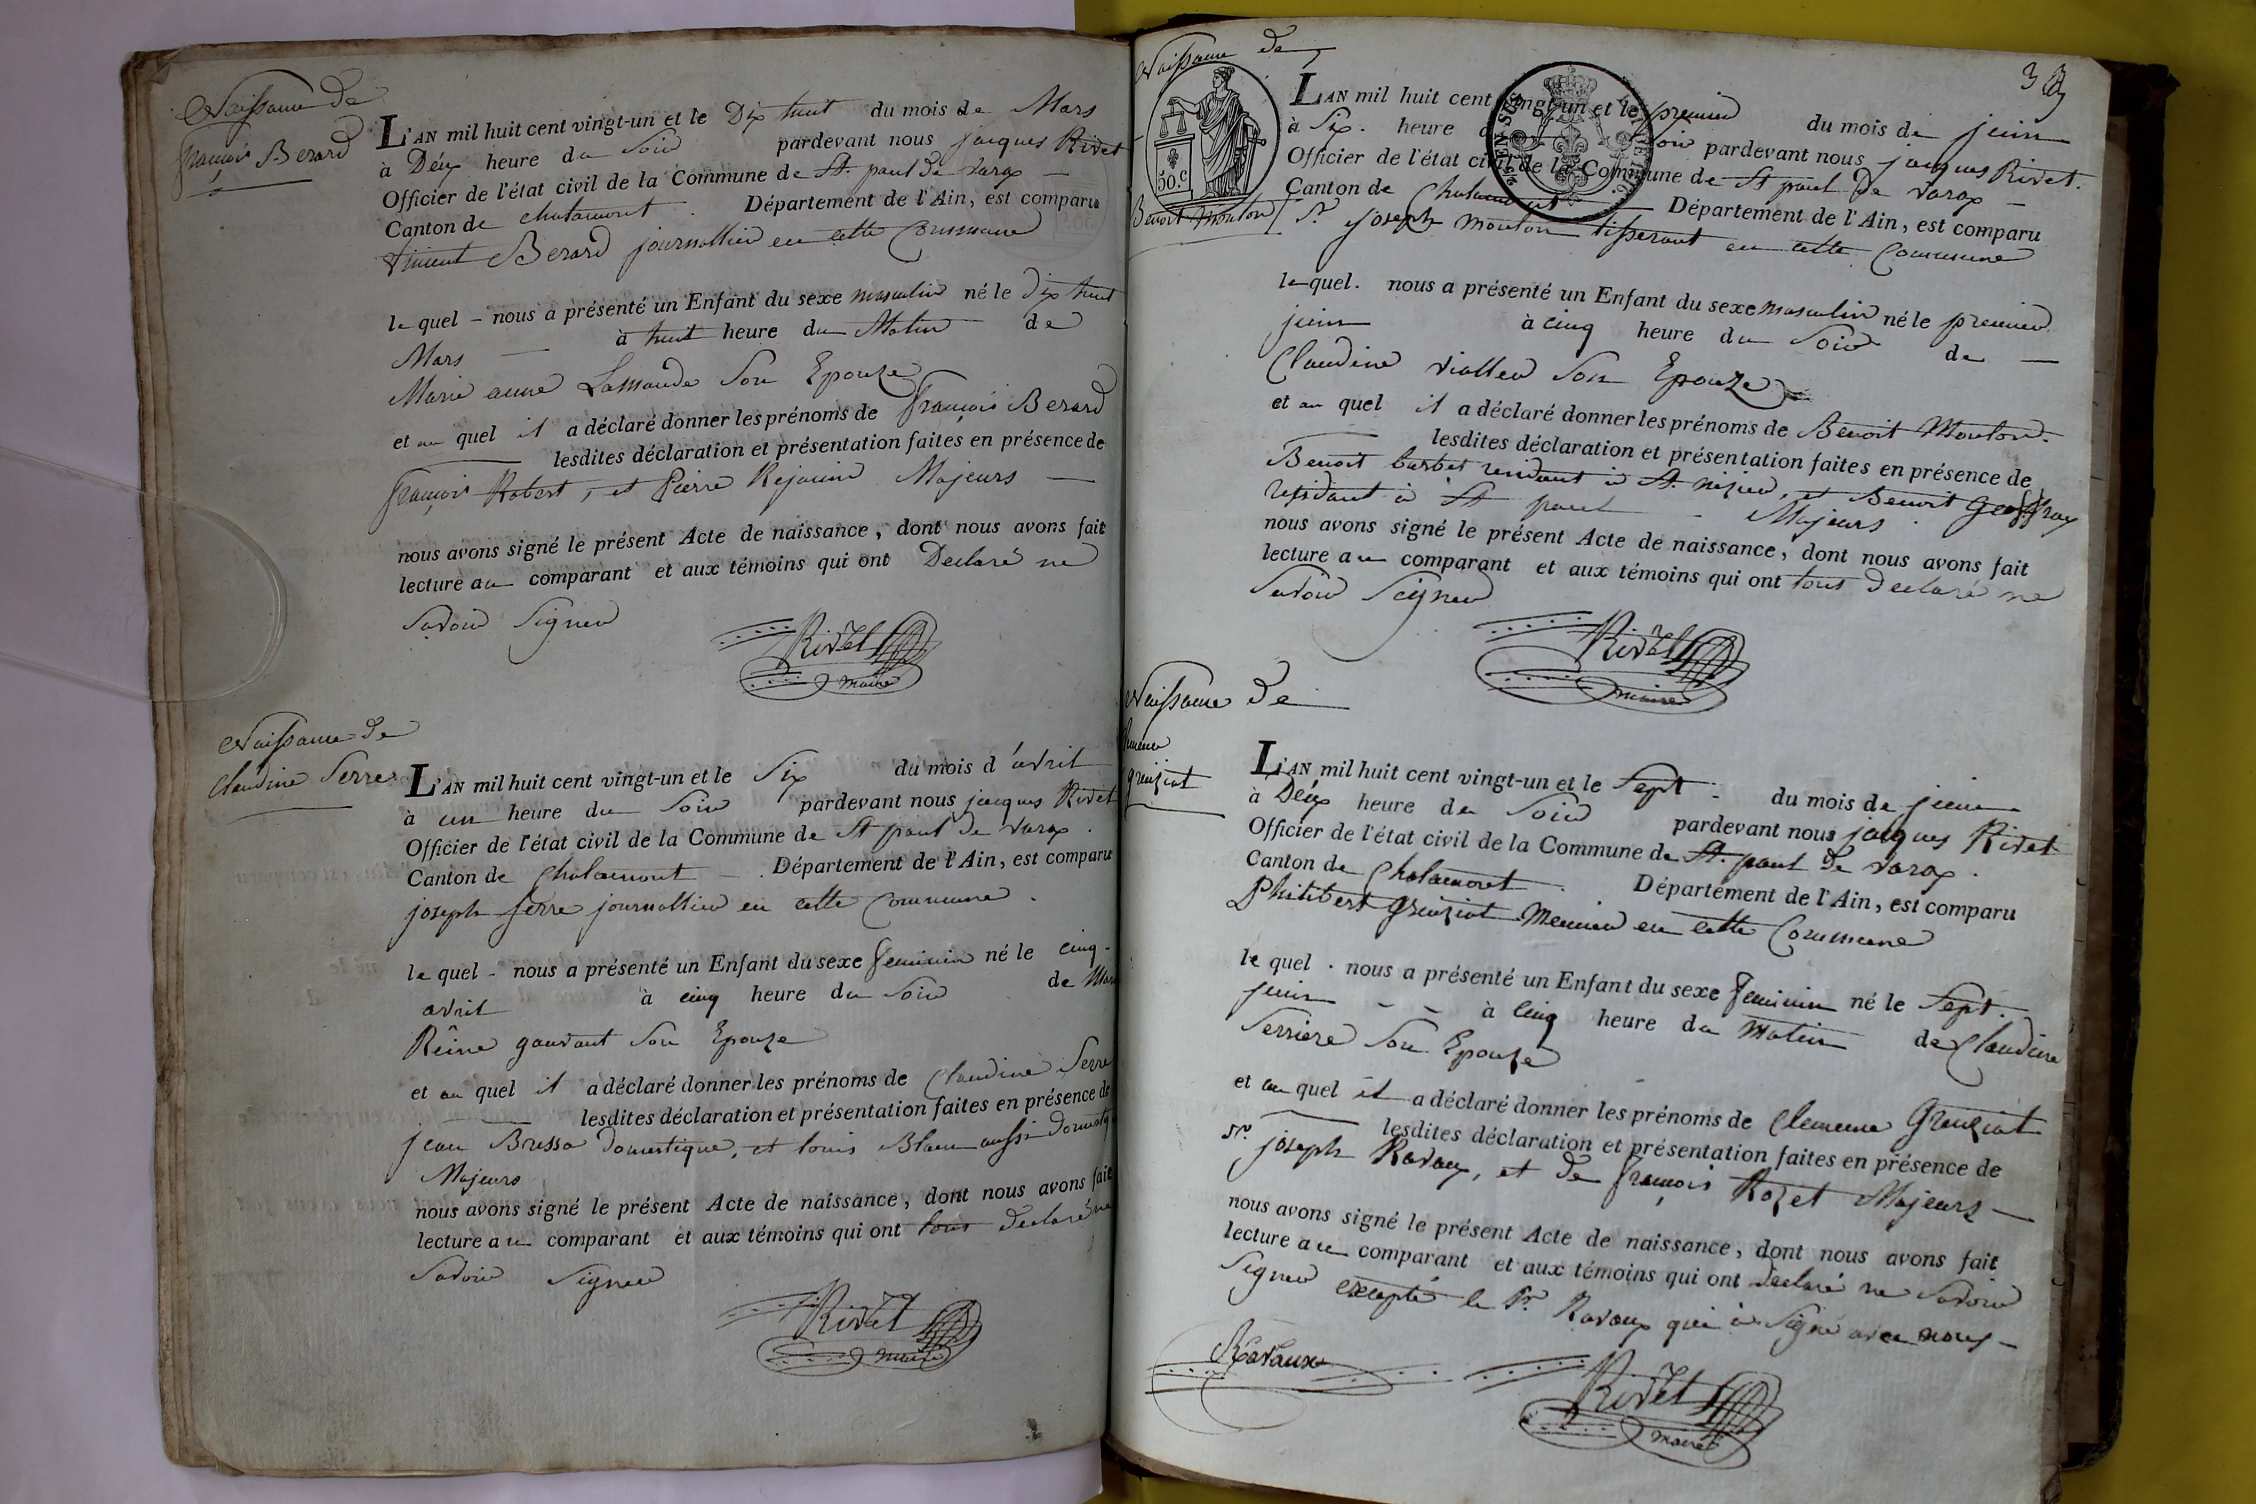 Naissance de
françois Berard
L'AN mil huit cent vingt-un et le Dix huit du mois de Mars
à Deux heure du Soir pardevant nous jacques Rivet
Officier de l'état civil de la Commune de St. paul de varax
Canton de chalamont. Département de l'Ain, est comparu
vincent Berard journallier en cette Commune
le quel - nous a présenté un Enfant du sexe masculin né le dix huit
Mars à huit heure du Matin de
Marie anne Lamande Son Epouze
et au quel il a déclaré donner les prénoms de françois Berard
lesdites déclaration et présentation faites en présence de
françois Robert, et Pierre Rejanin Majeurs
nous avons signé le présent Acte de naissance, dont nous avons fait
lecture au comparant et aux témoins qui ont Declaré ne
Savoir Signer
Rivet
maire
Naissance de
Claudine Serre
L'AN mil huit cent vingt-un et le Six du mois d'avril
à un heure du Soir pardevant nous jacques Rivet
Officier de l'état civil de la Commune de St paul de varax.
Canton de Chalamont - . Département de l'Ain, est comparu
joseph serre journallier en cette Commune.
le quel - nous a présenté un Enfant du sexe feminin né le cinq-
avril à cinq heure du Soir de
Reine gauvant Son Epouze
et au quel il a déclaré donner les prénoms de Claudine Serre
lesdites déclaration et présentation faites en présence de
jean Bressa Domestique, et louis Blanc aussi
Majeurs
nous avons signé le présent Acte de naissance, dont nous avons fait
lecture au comparant et aux témoins qui ont tous declaré ne
Savoir Signer
Rivet
maire
Naissance de
50.c
Benoit Mouton
L'AN mil huit cent vingt-un et le premier du mois de juin
à Six. heure du Soir pardevant nous jacques Rivet.
Officier de l'état civil de la Commune de St paul de varax -
Canton de Chalamont Département de l'Ain, est comparu
Sr. joseph Mouton tisserant en cette Commune
le quel. nous a présenté un Enfant du sexe masculin né le premier
juin à cinq heure du Soir de
Claudine vialler Son Epouze
et au quel il a déclaré donner les prénoms de Benoit Mouton.
lesdites déclaration et présentation faites en présence de
Benoit barbet residant à St. nizier, et Benoit geoffray
residant à St paul - Majeurs.
nous avons signé le présent Acte de naissance, dont nous avons fait
lecture au comparant et aux témoins qui ont tous declaré ne
Savoir Seigner
Rivet
maire
Naissance de
greuziat
L'AN mil huit cent vingt-un et le Sept - du mois de juin
à Deux heure du Soir pardevant nous jacques Rivet
Officier de l'état civil de la Commune de St. paul de varax.
Canton de Chalamont. Département de l'Ain, est comparu
Philibert greuziat Meunier en cette Commune
le quel. nous a présenté un Enfant du sexe feminin né le Sept.
juin - - à cinq heure du Matin de Claudine
Serriere Son Epouze
et au quel il a déclaré donner les prénoms de Clemence Greuziat
lesdites déclaration et présentation faites en présence de
Sr. joseph Ravaux, et de françois Rozet Majeurs -
nous avons signé le présent Acte de naissance, dont nous avons fait
lecture au comparant et aux témoins qui ont declaré ne Savoir
Signer excepté le Sr Ravaux qui à Signé avec nous -
Ravaux
Rivet
maire